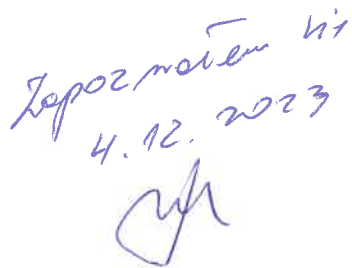 Zapoznałem się
4.12.2023